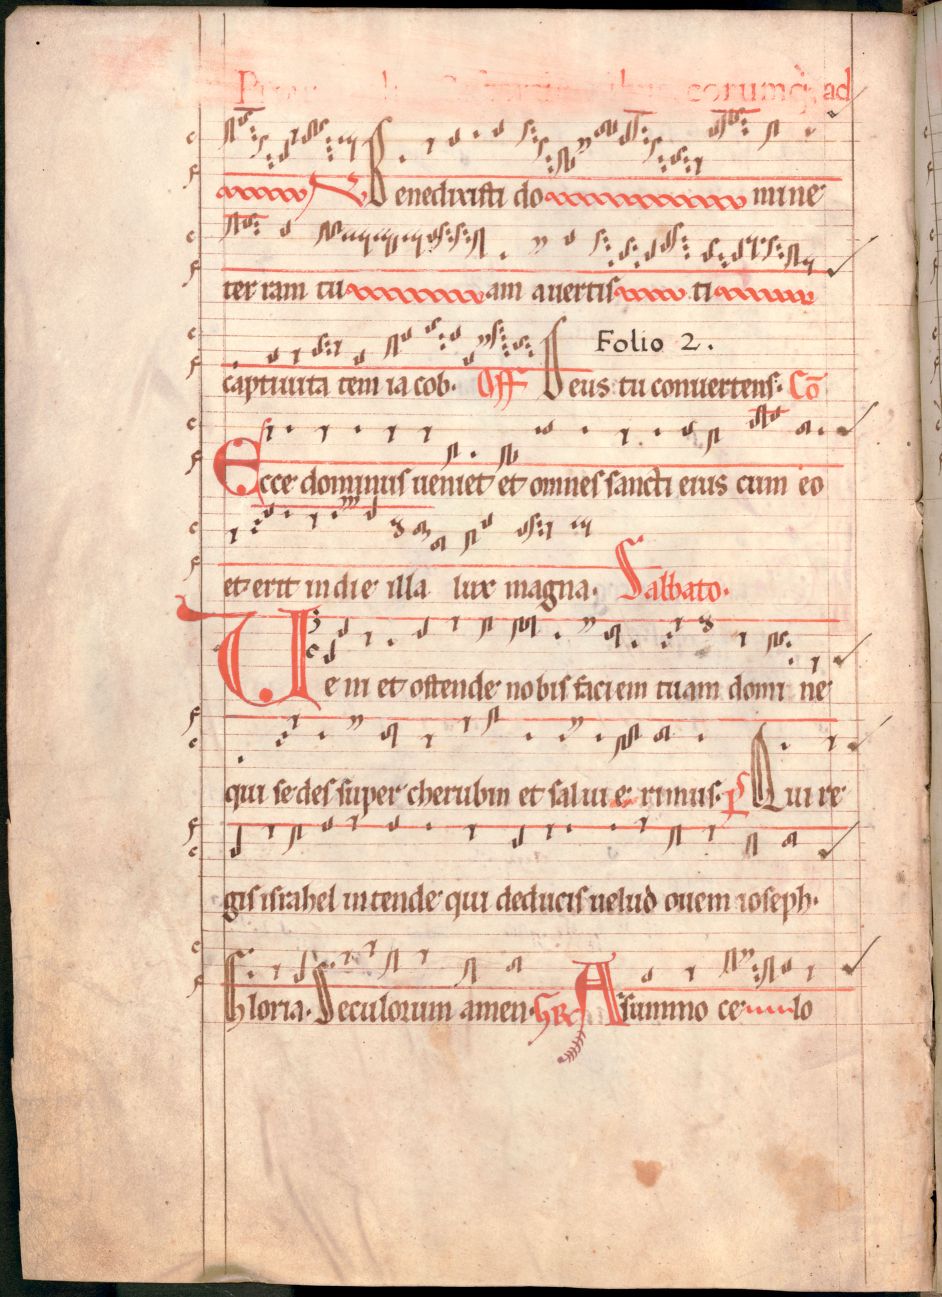 eorumq; ad
V Benedixisti do mine
ter ram tu am avertisti ti
captiuita tem ia cob. Off Deus tu conuertens. Cō
Folio 2.
Ecce dominus ueniet et omnes sancti eius cum eo
et erit in die illa lux magna. Sabbato.
Ueni et ostende nobis faciem tuam domi ne
qui sedes super cherubin et salui e rimus. Ps Qui re
gis israhel intende qui deducis uelud ouem ioseph.
Gloria. Seculorum amen. GR A summo ce lo